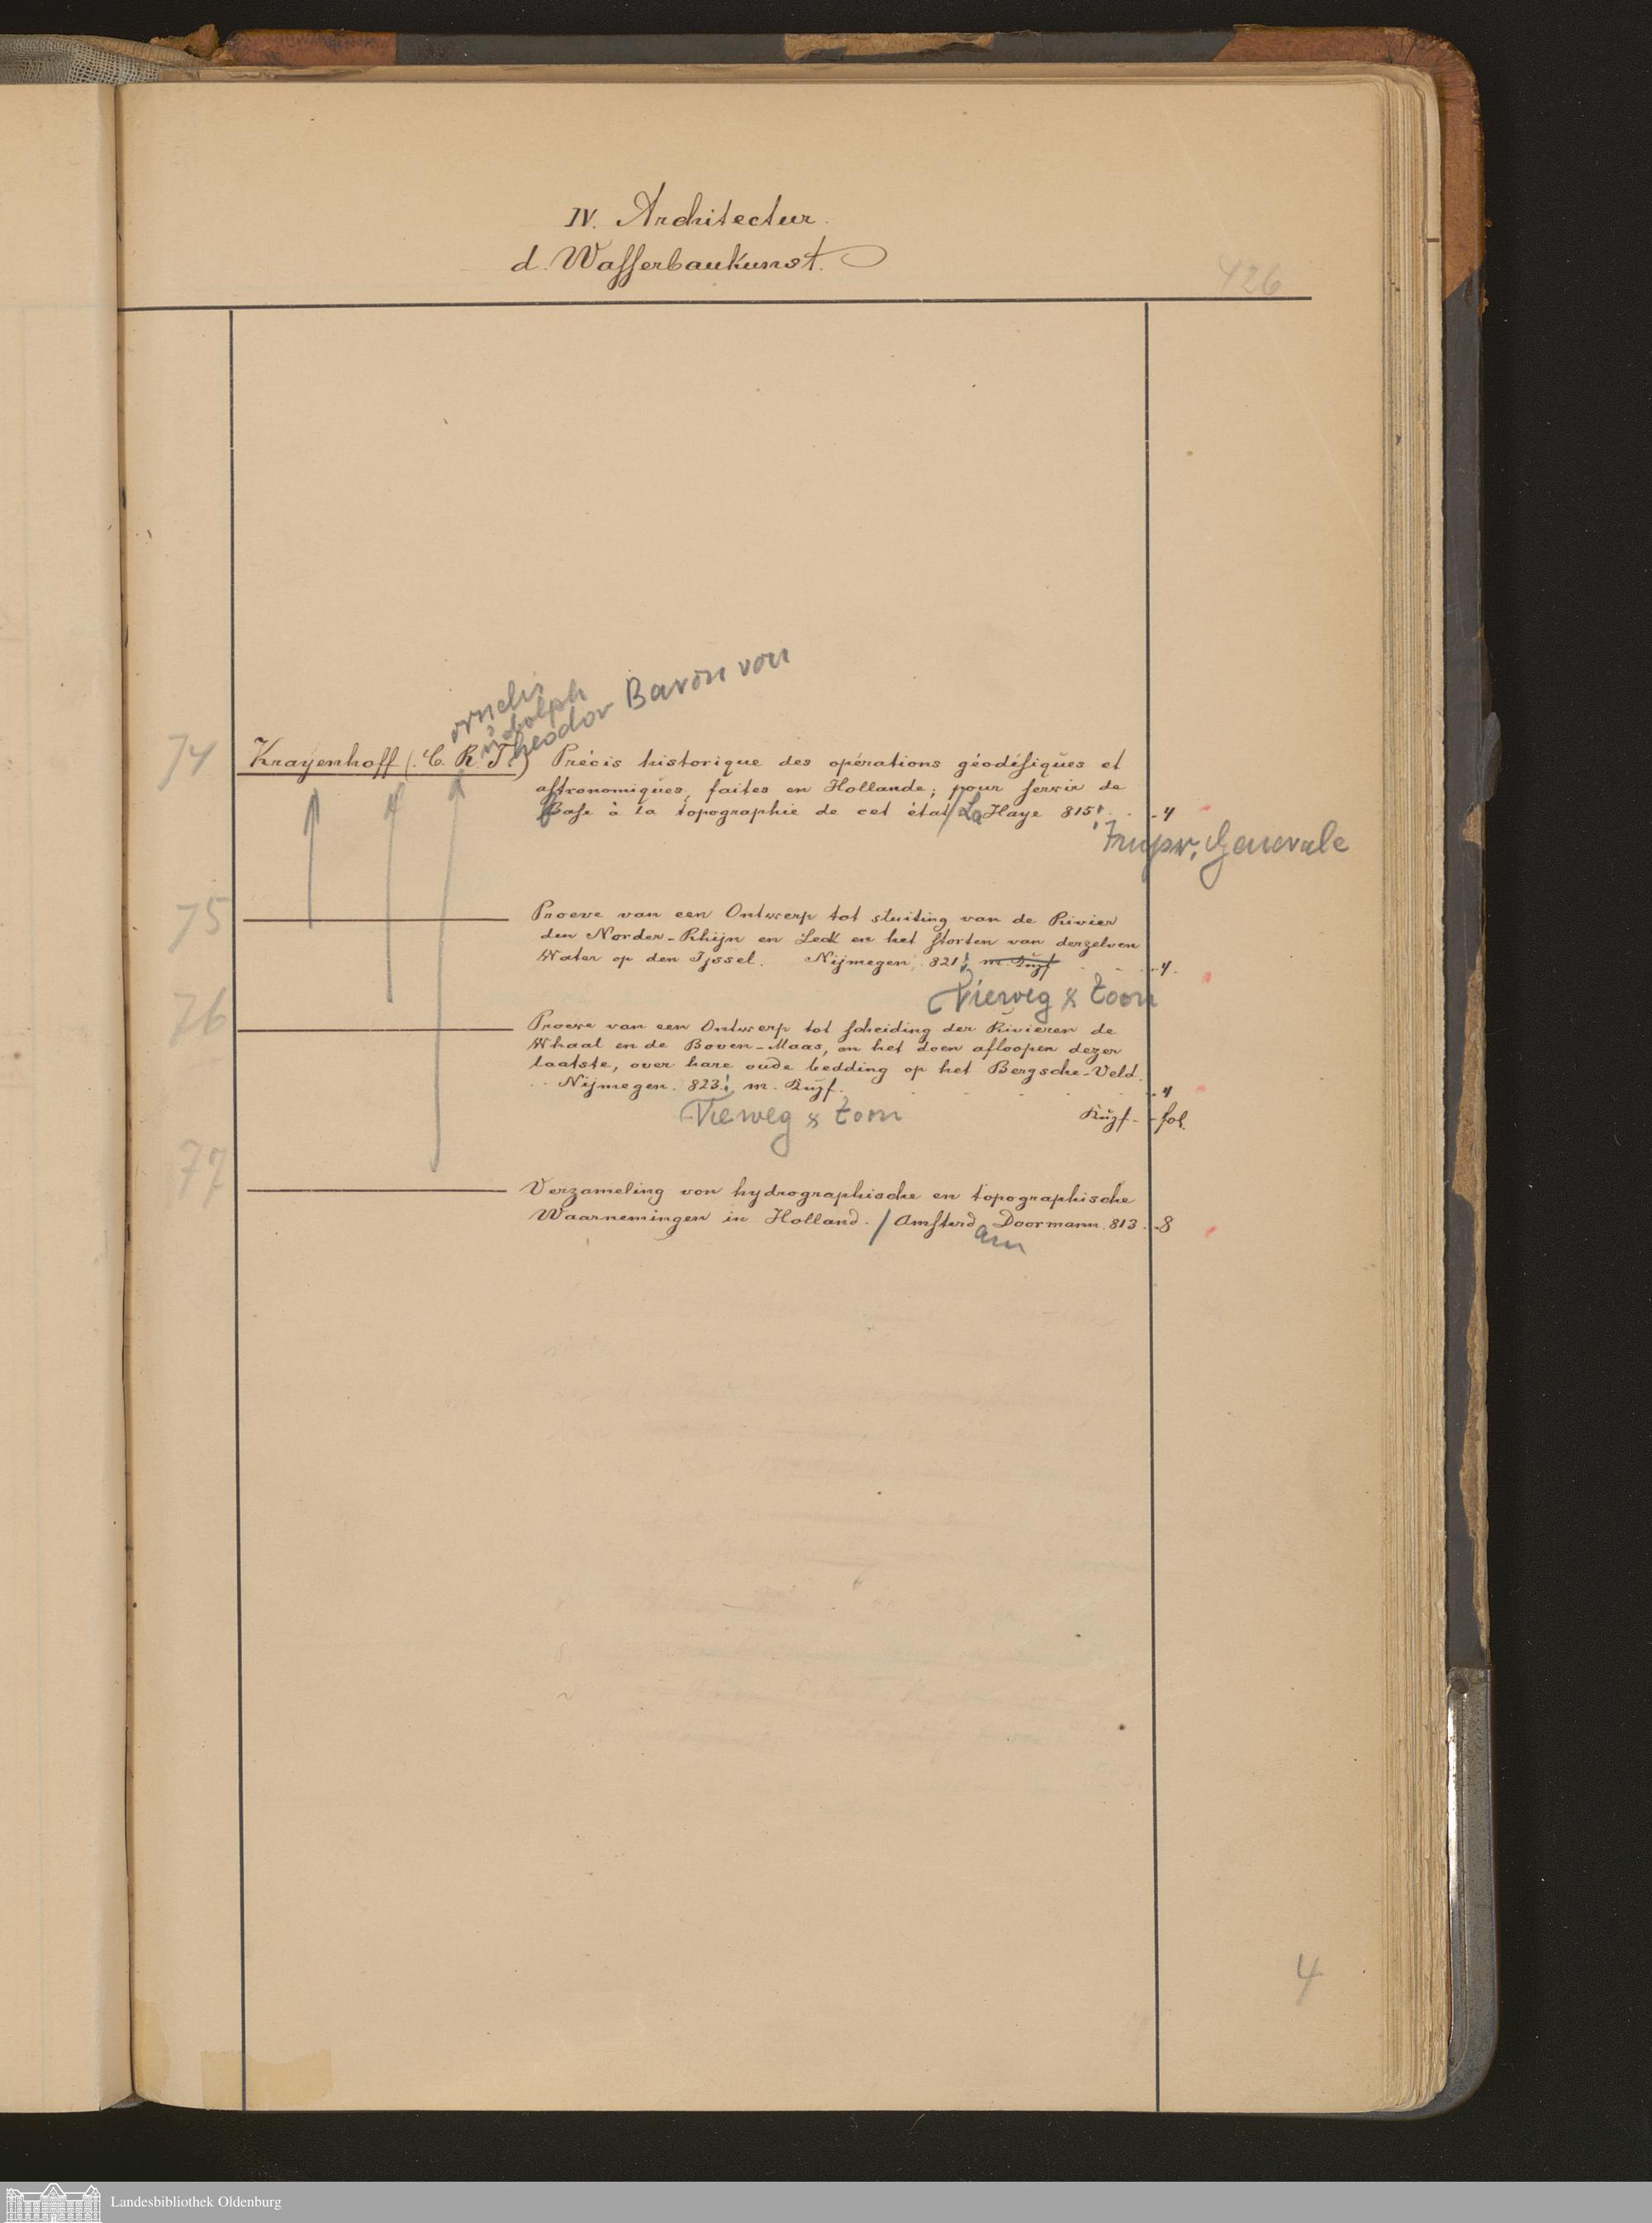 IV. Architectur.
d. Wasserbaukunst.
426
ornelis
udolph
heodor Baron von
74 Krayenhoff (C. R. T.) Précis historique des opérations géodésiques et
astronomiques, faites en Hollande; pour servir de
Base à la topographie de cet état / La Haye 815. 4
Impr. Generale
75 Proeve van een Ontwerp tot sluiting van de Rivier
den Norder-Rhijn en Leck en het storten van derzelven
Water op den Ijssel. Nijmegen. 821. m. Kupf 4.
Vieweg & Zoon
76 Proeve van een Ontwerp tot scheiding der Rivieren de
Whaal en de Boven-Maas, en het doen afloopen dezer
laatste, over hare oude bedding op het Bergsche-Veld.
Nijmegen. 823. m. Kupf. 4
Vieweg & Zoon Kupf. fol.
77 Verzameling von hydrographische en topographische
Waarnemingen in Holland. / Amsterd Doormann. 813. 8
am
4
Landesbibliothek Oldenburg